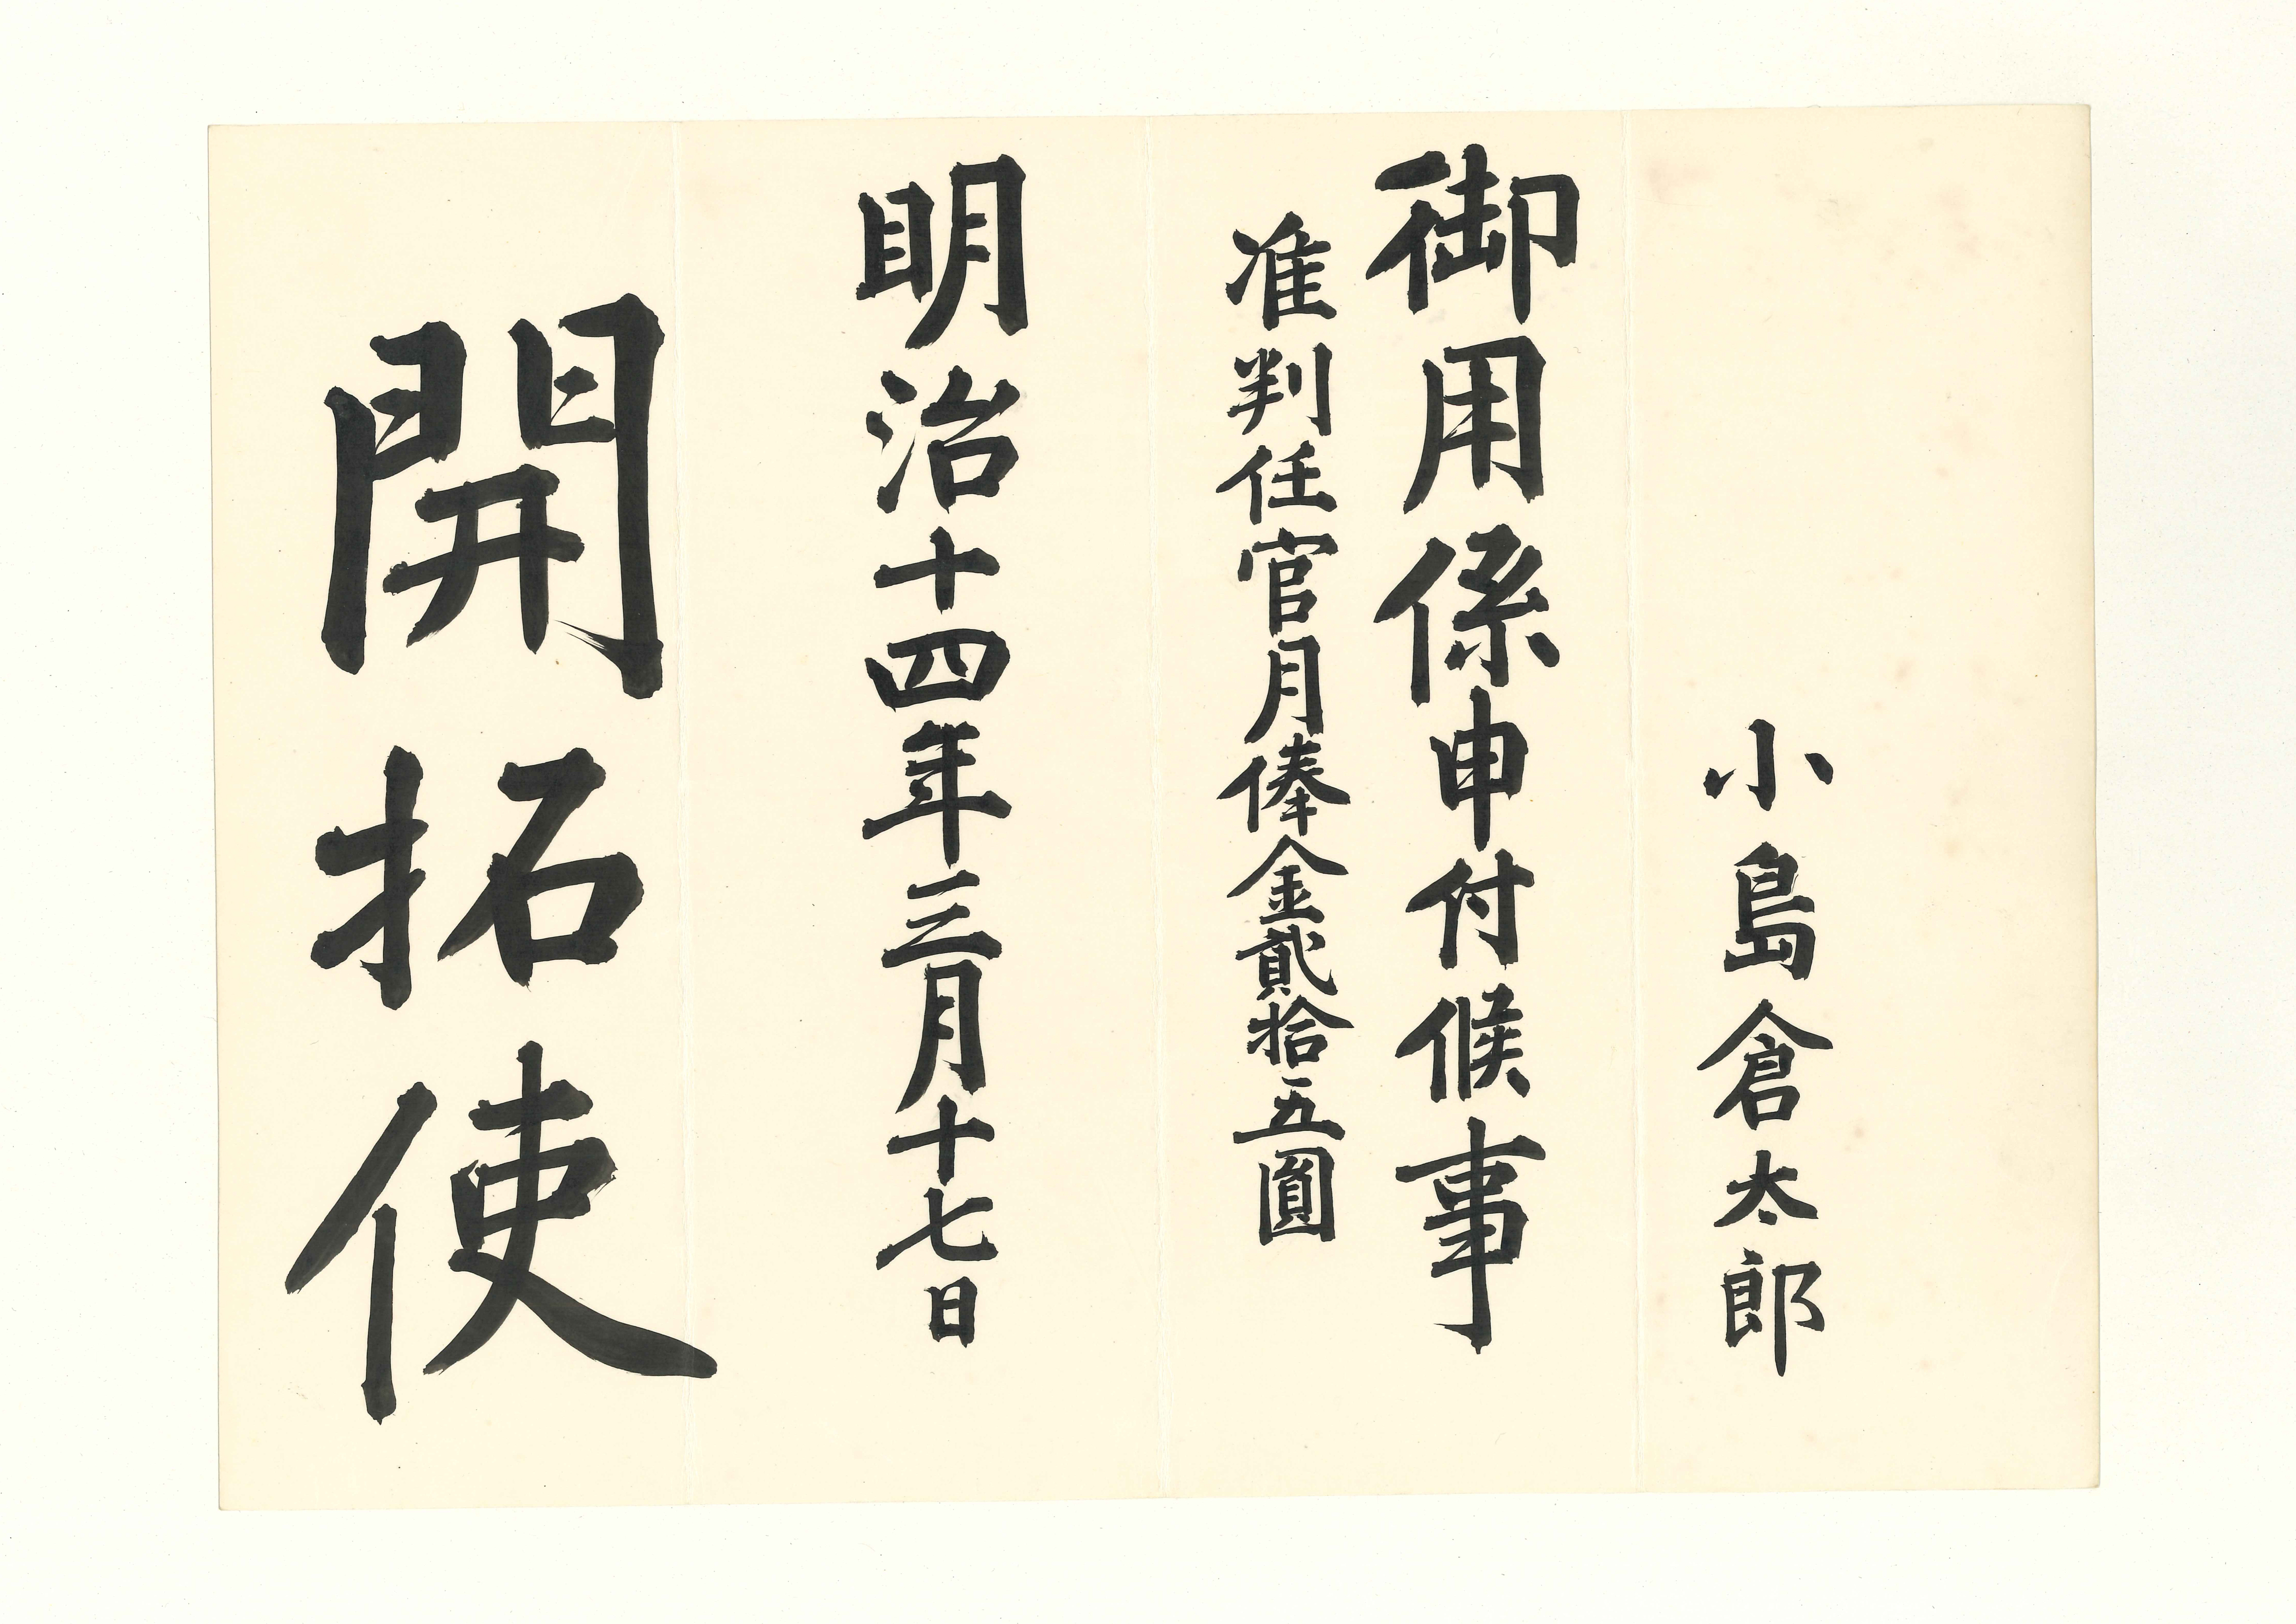 小島倉太郎
御用係申付候事
准判任官月俸金貳拾五圓
明治十四年三月十七日
開拓使